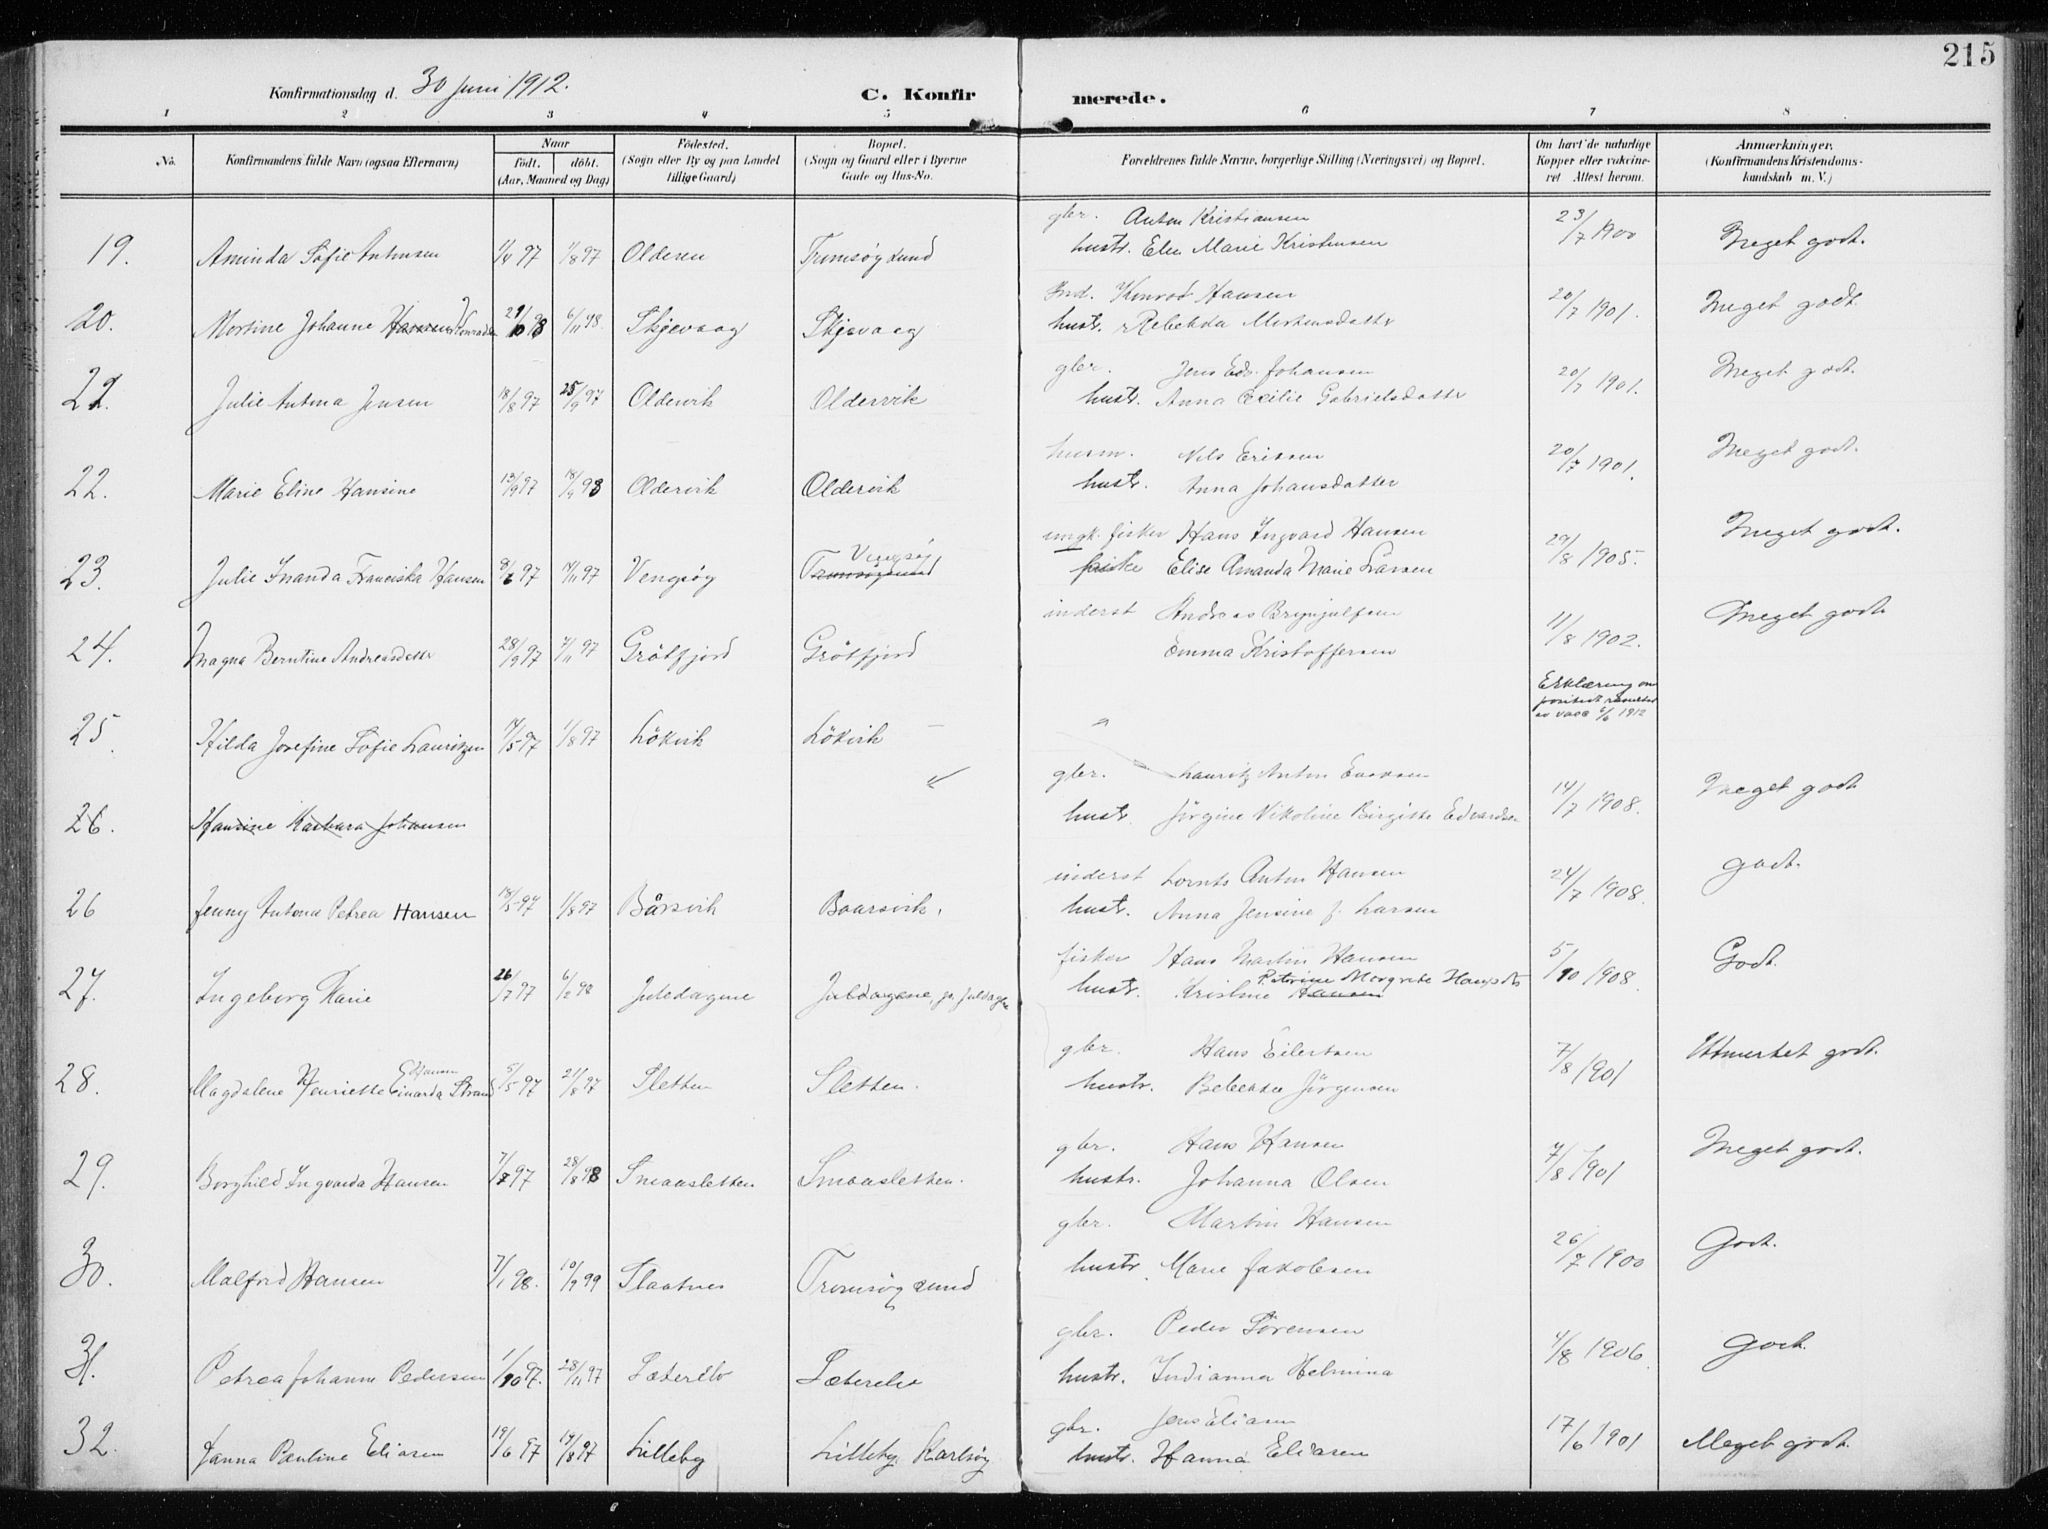 215
Konfirmationsdag d. 30 Juni 1912. C. Konfirmerede.
1 2 3 4 5 6 7 8
No. Konfirmandens fulde Navn (ogsaa Efternavn) Naar født. døbt. (Aar, Maaned og Dag) Fødested. (Sogn eller By og paa Landet tillige Gaard) Bopæl. (Sogn og Gaard eller i Byerne Gade og Hus-No. Forældrenes fulde Navne, borgerlige Stilling (Næringsvei) og Bopæl. Om havt de naturlige Kopper eller vakcineret Attest herom. Anmærkninger. (Konfirmandens Kristendomskundskab m. V.)
gbr. Anton Kristiansen 23/7 1900
19. Aminda Sofie Antonsen 1/4 97 1/8 97 Olderen Tromsøysund hustr. Elen Marie Kristensen Meget godt.
Ind. Konrad Hansen 20/7 1901. Meget godt.
20. Martine Johanne Hansen Konradsen 29/10 98 6/11 98. Skjevaag Skjevaag hustr. Rebekka Mortensdatter
gbr. Jens Ed. Johansen 20/7 1901. Meget godt.
21. Julie Antona Jensen 18/8 97 25/9 97 Oldervik Oldervik hustr. Anna Cecilie Gabrielsdatter
husm. Nils Eriksen 20/7 1901. Meget godt.
22. Marie Eline Hansine 13/9 97 18/9 98 Oldervik Oldervik hustr. Anna Johansdatter
ungk. fisker Hans Ingvard Hansen 29/8 1905. Meget godt.
23. Julie Inanda Franciska Hansen 8/6 97 14/11 97 Vengsøy Vengsøy Tromsøysund Elise Amanda Marie Larsen
inderst Andreas Brynjulfsen 11/8 1902. Meget godt
24. Magna Berntine Andreasdatter 28/9 97 7/11 97 Grøtfjord Grøtfjord Emma Kristoffersen
Erklæring om positivt resultat av vacc 6/6 1912
25. Hilda Josefine Sofie Lauritzen 14/5 97 1/8 97 Løkvik Løkvik
gbr. Lauritz Anton 14/7 1908. Meget godt
26. Hansine Barbara Johansen hustr. Jörgine Nikoline Birgitte Edvardsen
inderst Lornts Anton Hansen 24/7 1908. godt.
26 Jenny Antona Petrea Hansen 18/5 97 1/8 97 Bårsvik Baarsvik. hustr. Anna Jensine f. Larsen
fisker Hans Martin Hansen 5/10 1908. Godt.
27. Ingeborg Marie 26/7 97 6/2 98 Juledagene Juldagene, hustr. Kristine Petrine Margrete Hansen
gbr. Hans Eilertsen 7/8 1901 Utmerket godt.
28. Magdalene Henriette Einarda Strand Hansen 5/5 97 21/8 97 Sletten Sletten. hustr. Bebekka Jörgensen
gbr. Hans Hansen 7/8 1901 Meget godt.
29. Borghild Ingvarda Hansen 7/7 97 28/8 98 Smaasletten Smaasletten. hustr. Johanna Olsen
gbr. Martin Hansen 26/7 1900 Godt.
30. Malfrid Hansen 7/1 98. 10/9 99 Slaatnes Tromsøysund hustr. Marie Jakobsen
gbr. Peder Sørensen 4/8 1906. Godt.
31. Petrea Johanne Pedersen 1/10 97. 28/11 97 Sæterelv Sæterelv hustr. Indianna Helmina
gbr. Jens Eliasen 17/6 1901 Meget godt.
32. Janna Pauline Eliasen 19/6 97 14/8 97 Lilleby Lilleby, Karlsøy hustr. Hanna Eliasen